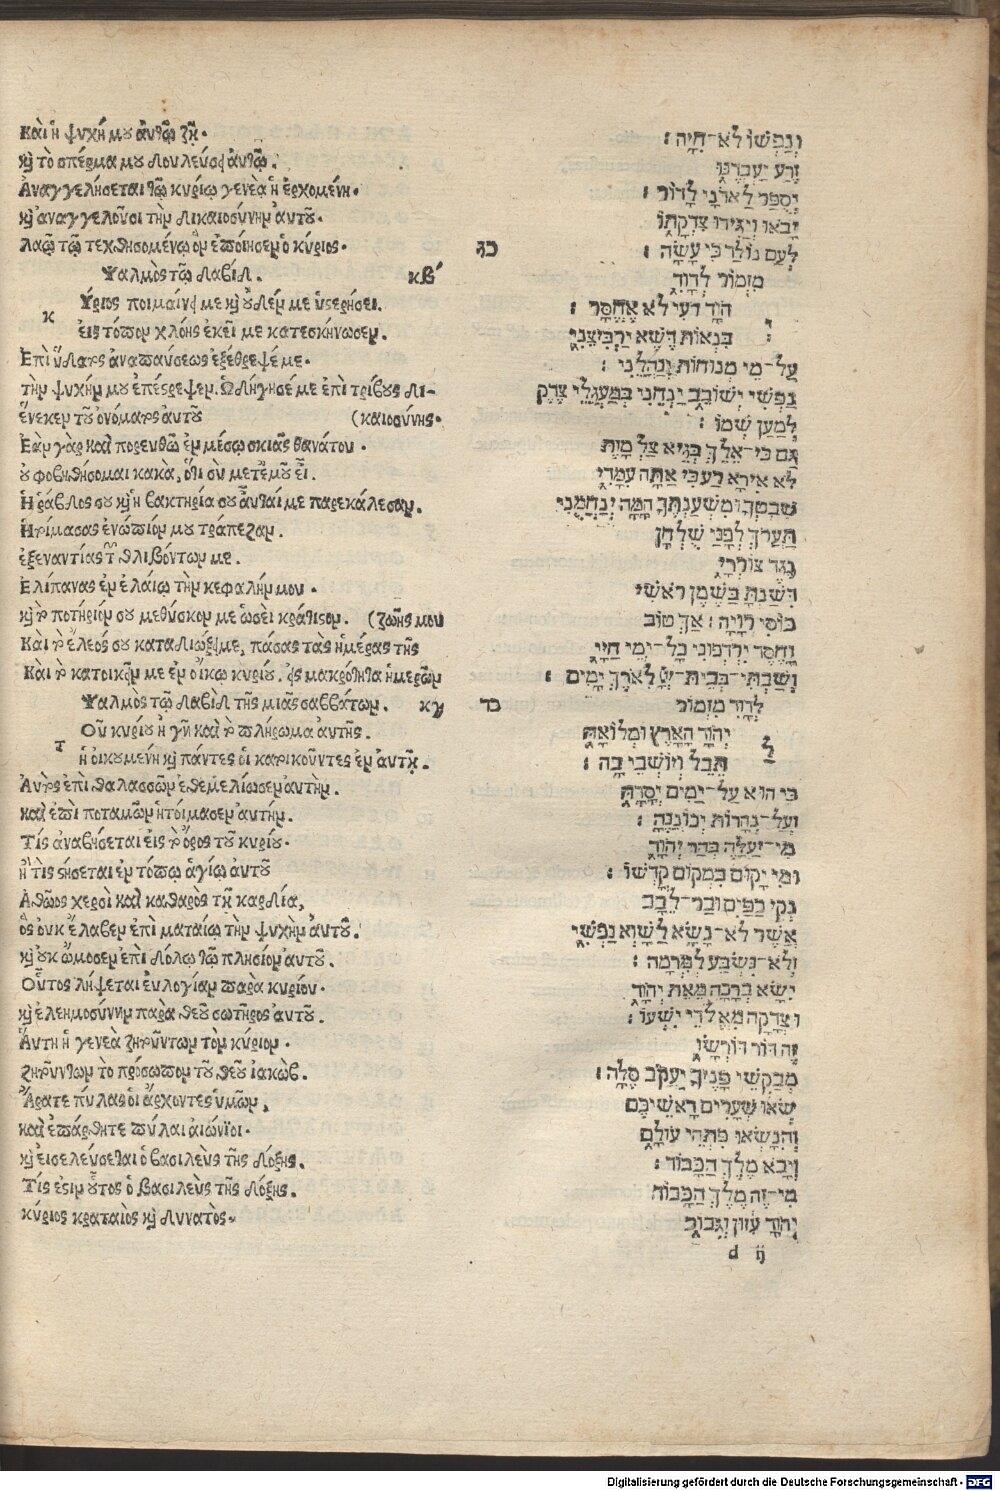 Καὶ ἡ ψυχή μου ἀυτῷ ζῇ.
καὶ τὸ σπέρμα μου δουλεύσει ἀυτῷ.
Ἀναγγελήσεται τῷ κυρίῳ γενεὰ ἡ ἐρχομένη.
καὶ ἀναγγελοῦσι τὴν δικαιοσύνην ἀυτοῦ.
λαῷ τῷ τεχθησομένῳ ὃν ἐποίησεν ὁ κύριος.
Ψαλμὸς τῷ δαβίδ. κβ´
Κύριος ποιμαίνει με καὶ οὐδέν με ὑστερήσει.
εἰς τόπον χλόης ἐκεῖ με κατεσκήνωσεν.
Ἐπὶ ὕδατος ἀναπαύσεως ἐξέθρεψέ με.
τὴν ψυχήν μου ἐπέστρεψεν. Ὡδήγησέ με ἐπὶ τρίβους δι-
ἕνεκεν τοῦ ὀνόματος ἀυτοῦ (καιοσύνης.
Ἐὰν γὰρ καὶ πορευθῶ ἐν μέσῳ σκιᾶς θανάτου.
οὐ φοβηθήσομαι κακὰ, ὅτι σὺ μετ᾽ἐμοῦ εἶ.
Ἡ ῥάβδος σου καὶ ἡ βακτηρία σου ἀυταί με παρεκάλεσαν.
Ἡτοίμασας ἐνώπιόν μου τράπεζαν.
ἐξεναντίας τῶν θλιβόντων με.
Ἐλίπανας ἐν ἐλαίῳ τὴν κεφαλήν μου.
καὶ τὸ ποτήριόν σου μεθύσκον με ὡσεὶ κράτιστον. (ζωῆς μου
Καὶ τὸ ἔλεός σου καταδιώξει με, πάσας τὰς ἡμέρας τῆς
Καὶ τὸ κατοικεῖν με ἐν οἴκῳ κυρίου, εἰς μακρότητα ἡμερῶν
Ψαλμὸς τῷ δαβὶδ τῆς μιᾶς σαββάτων. κγ
Τοῦ κυρίου ἡ γῆ καὶ τὸ πλήρωμα αυτῆς.
ἡ οἰκουμένη καὶ πάντες οἱ κατοικοῦντες ἐν ἀυτῇ.
Ἀυτὸς ἐπὶ θαλασσῶν ἐθεμελίωσεν ἀυτὴν.
καὶ ἐπὶ ποταμῶν ἡτοίμασεν ἀυτήν.
Τίς ἀναβήσεται εἰς τὸ ὄρος τοῦ κυρίου.
ἢ τὶς στήσεται ἐν τόπῳ ἁγίῳ ἀυτοῦ
Ἀθῶος χερσὶ καὶ καθαρὸς τῇ καρδίᾳ,
ὃς ουκ ἔλαβεν ἐπὶ ματαίῳ τὴν ψυχὴν ἀυτοῦ.
καὶ οὐκ ὤμοσεν ἐπὶ δόλῳ τῷ πλησίον ἀυτοῦ.
Οὗτος λήψεται ἐυλογίαν παρὰ κυρίου.
καὶ ἐλεημοσύνην παρὰ θεοῦ σωτῆρος ἀυτοῦ.
Ἅυτη ἡ γενεὰ ζητούντων τὸν κύριον.
ζητούντων τὸ πρόσωπον τοῦ θεοῦ ἰακώβ.
Ἄρατε πύλας οἱ ἄρχοντες ὑμῶν,
καὶ ἐπάρθητε πύλαι αἰώνιοι.
καὶ εἰσελεύσεται ὁ βασιλεὺς τῆς δόξης.
Τίς ἐστιν οὗτος ὁ βασιλεὺς τῆς δόξης.
κύριος κραταιὸς καὶ δυνατὸς.
וְנַפְשׁוֹ לֹא־חִיָּה׃
זֶרַע יַעַבְדֶנּוּ
יְסֻפַּר לַאדֹנָי לַדּוֹר׃
יָבֹאוּ וְיַגִּידוּ צִדְקָתוֹ
כג לְעַם נוֹלָד כִּי עָשָׂה׃
מִזְמוֹר לְדָוִד
יְהֹוָה רֹעִי לֹא אֶחְסָר׃
בִּנְאוֹת דֶּשֶׁא יַרְבִּיצֵנִי
עַל־מֵי מְנוּחוֹת יְנַהֲלֵנִי׃
נַפְשִׁי יְשׁוֹבֵב יַנְחֵנִי בְּמַעְגְּלֵי צֶדֶק
לְמַעַן שְׁמוֹ׃
גַּם כִּי־אֵלֵךְ בְּגֵיא צַלְמָוֶת
לֹא אִירָא רָע כִּי אַתָּה עִמָּדִי
שִׁבְטְךָ וּמִשְׁעַנְתֶּךָ הֵמָּה יְנַחֲמֻנִי
תַּעֲרֹךְ לְפָנַי שֻׁלְחָן
נֶגֶד צוֹרְרָי
דִּשַּׁנְתָּ בַשֶּׁמֶן רֹאשִׁי
כּוֹסִי רְוָיָה׃ אַךְ טוֹב
וָחֶסֶד יִרְדְּפוּנִי כָּל־יְמֵי חַיָּי
וְשַׁבְתִּי־בְּבֵית־יְיָ לְאֹרֶךְ יָמִים׃
כד לְדָוִד מִזְמוֹר
לַיהֹוָה הָאָרֶץ וּמְלוֹאָהּ
תֵּבֵל וְיוֹשְׁבֵי בָהּ׃
כִּי הוּא עַל־יַמִּים יְסָדָהּ
וְעַל־נְהָרוֹת יְכוֹנְנֶהָ׃
מִי־יַעֲלֶה בְהַר יְהֹוָה
וּמִי יָקוּם בִּמְקוֹם קָדְשׁוֹ׃
נְקִי כַפַּיִם וּבַר־לֵבָב
אֲשֶׁר לֹא־נָשָׂא לַשָּׁוְא נַפְשִׁי
וְלֹא־נִשְׁבַּע לְמִרְמָה׃
יִשָּׂא בְרָכָה מֵאֵת יְהֹוָה
וּצְדָקָה מֵאֱלֹהֵי יִשְׁעוֹ׃
זֶה דּוֹר דּוֹרְשָׁיו
מְבַקְשֵׁי פָנֶיךָ יַעֲקֹב סֶלָה׃
שְׂאוּ שְׁעָרִים רָאשֵׁיכֶם
וְהִנָּשְׂאוּ פִּתְחֵי עוֹלָם
וְיָבֹא מֶלֶךְ הַכָּבוֹד׃
מִי־זֶה מֶלֶךְ הַכָּבוֹד
יְהֹוָה עִזּוּז וְגִבּוֹר
d ij
Digitalisierung gefördert durch die Deutsche Forschungsgemeinschaft - DFG